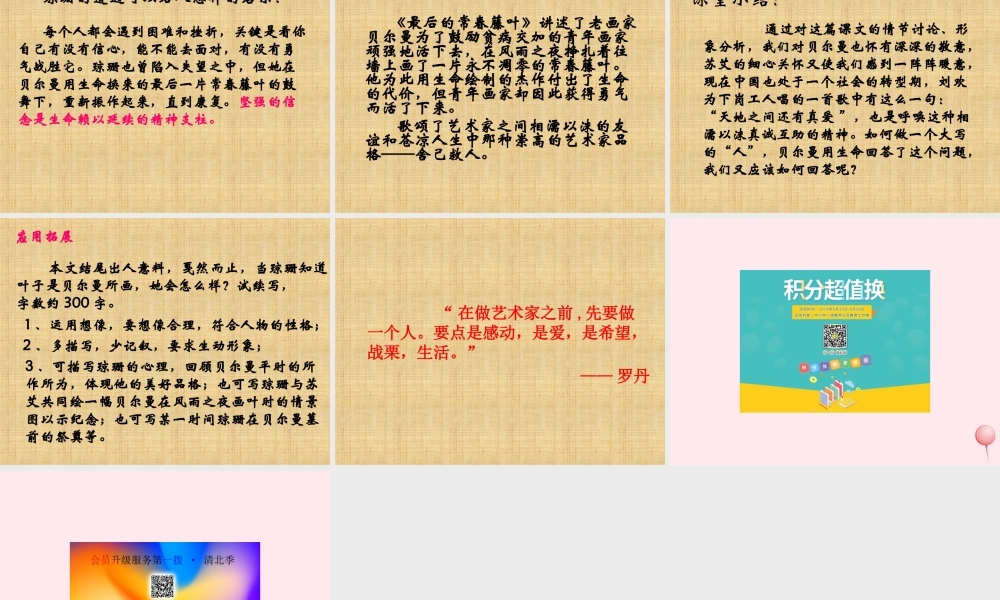 每个人都会遇到困难和挫折，关键是看你
自己有没有信心，能不能去面对，有没有勇
气战胜它。琼珊也曾陷入失望之中，但她在
贝尔曼用生命换来的最后一片常春藤叶的鼓
舞下，重新振作起来，直到康复。坚强的信
念是生命赖以延续的精神支柱。
《最后的常春藤叶》讲述了老画家
贝尔曼为了鼓励贫病交加的青年画家
顽强地活下去，在风雨之夜挣扎着往
墙上画了一片永不凋零的常春藤叶。
他为此用生命绘制的杰作付出了生命
的代价，但青年画家却因此获得勇气
而活了下来。
歌颂了艺术家之间相濡以沫的友
谊和苍凉人生中那种崇高的艺术家品
格——舍己救人。
课堂小结：
通过对这篇课文的情节讨论、形
象分析，我们对贝尔曼也怀有深深的敬意，
苏艾的细心关怀又使我们感到一阵阵暖意，
现在中国也处于一个社会的转型期，刘欢
为下岗工人唱的一首歌中有这么一句：
“天地之间还有真爱 ”，也是呼唤这种相
濡以沫真诚互助的精神。如何做一个大写
的“人”，贝尔曼用生命回答了这个问题，
我们又应该如何回答呢？
应用拓展
本文结尾出人意料，戛然而止，当琼珊知道
叶子是贝尔曼所画，她会怎么样？试续写，
字数约 300 字。
1 、运用想像，要想像合理，符合人物的性格；
2 、多描写，少记叙，要求生动形象；
3 、可描写琼珊的心理，回顾贝尔曼平时的所
作所为，体现他的美好品格；也可写琼珊与苏
艾共同绘一幅贝尔曼在风雨之夜画叶时的情景
图以示纪念；也可写某一时间琼珊在贝尔曼墓
前的祭奠等。
“ 在做艺术家之前 , 先要做
一个人。要点是感动，是爱，是希望，
战栗，生活。”
—— 罗丹
积分超值换
会员升级服务第一拨 · 清北季